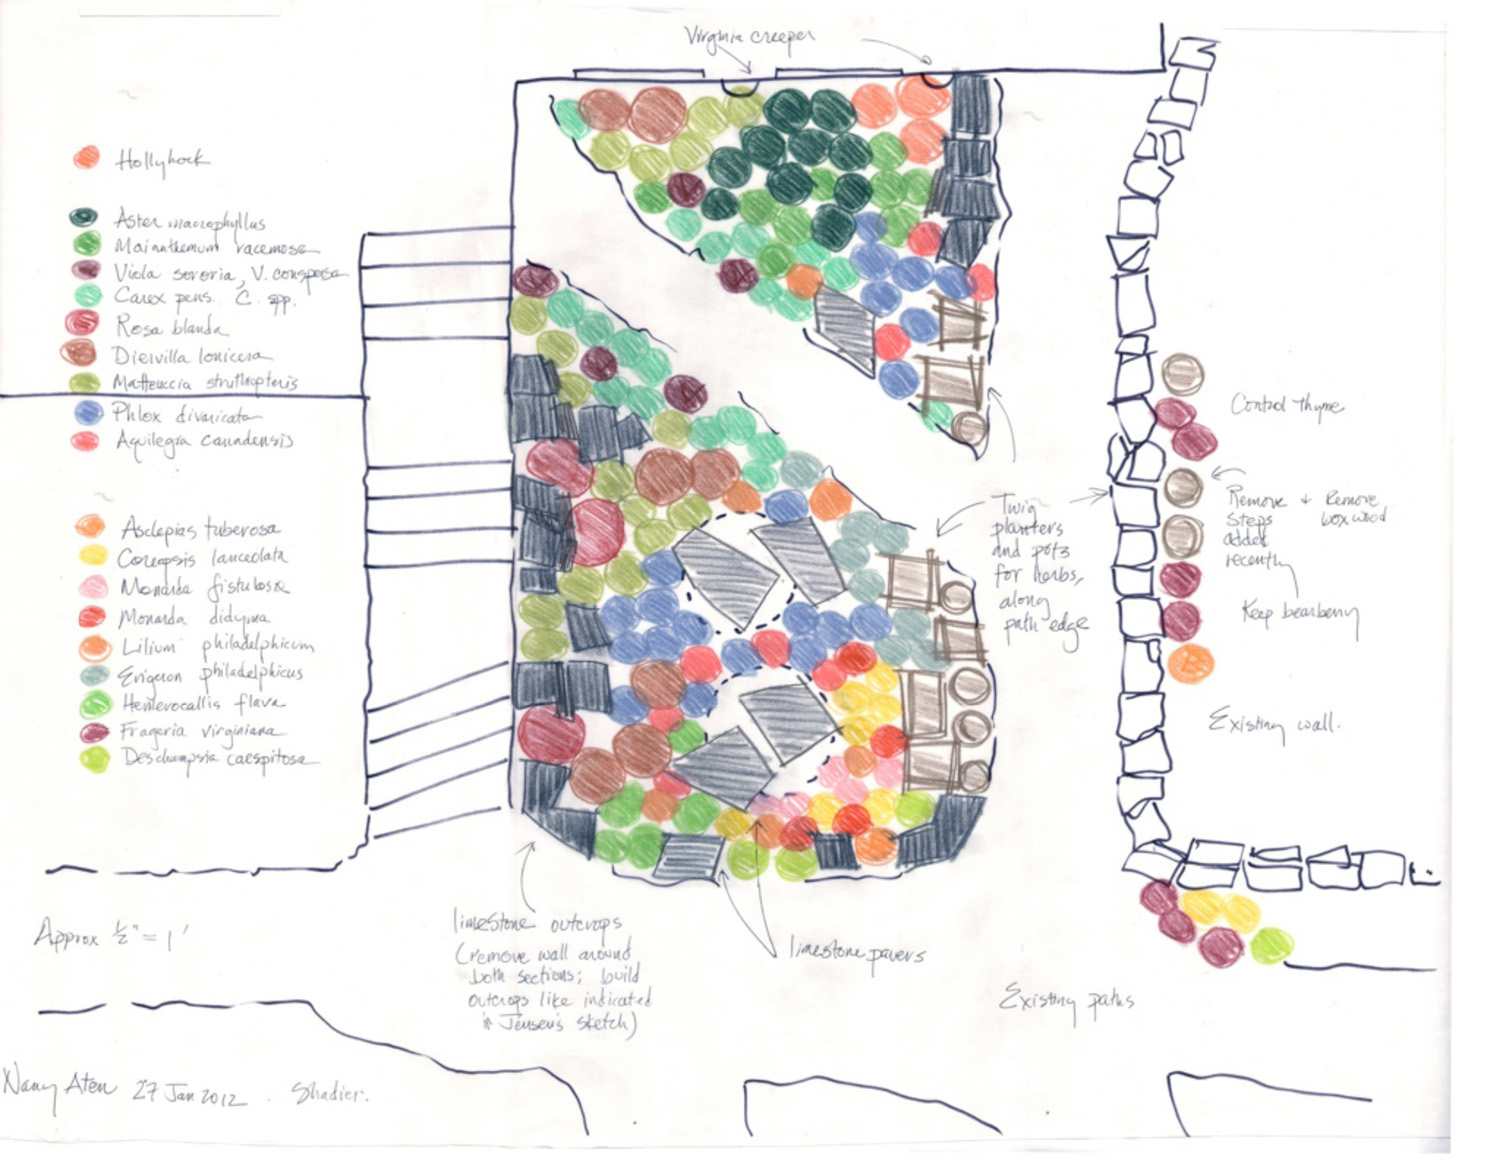 Virginia creeper
Hollyhock
Aster macrophyllus
Maianthemum racemosa
Viola sororia, V. conspersa
Carex pens. C. spp.
Rosa blanda
Diervilla lonicera
Matteuccia struthiopteris
Phlox divaricata
Aquilegia canadensis
Asclepias tuberosa
Coreopsis lanceolata
Monarda fistulosa
Monarda didyma
Lilium philadelphicum
Erigeron philadelphicus
Hemerocallis flava
Fragaria virginiana
Deschampsia caespitosa
Control thyme
Remove + Remove
steps boxwood
added
recently
Keep bearberry
Twig
planters
and pots
for herbs,
along
path edge
B
Existing wall.
Approx ½" = 1'
limestone outcrops
(remove wall around
both sections; build
outcrops like indicated
in Jensen's sketch)
limestone pavers
Existing paths
Nancy Aten 27 Jan 2012. Shadier.